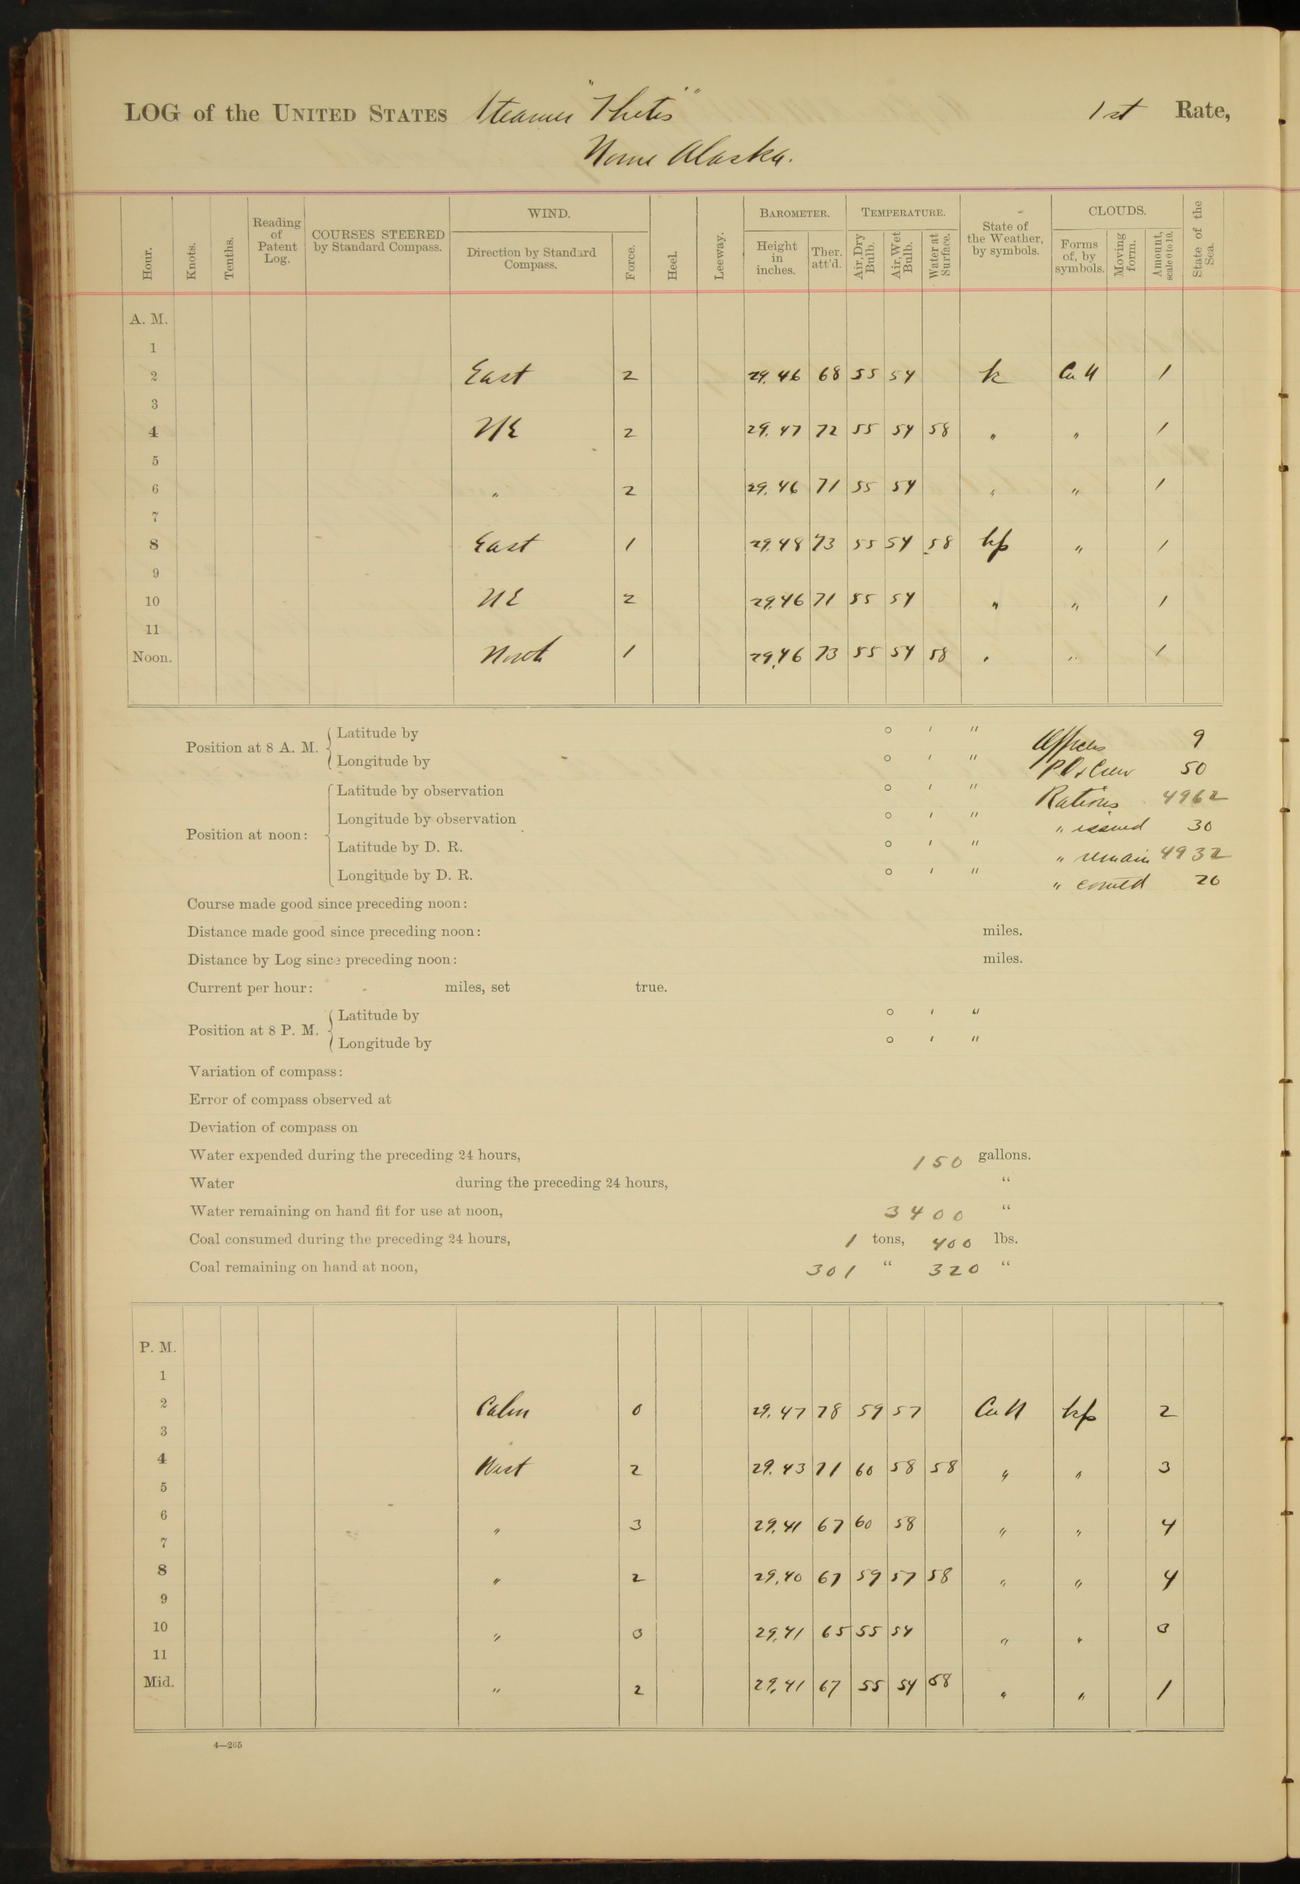 LOG of the UNITED STATES Steamer "Thetis" 1st Rate,
Nome Alaska.
Hour. Knots. Tenths. Reading of Patent Log. COURSES STEERED by Standard Compass. WIND. Direction by Standard Compass. Force. Heel. Leeway. BAROMETER. Height in inches. Ther. att'd. TEMPERATURE. Air, Dry Bulb. Air, Wet Bulb. Water at Surface. State of the Weather, by symbols. CLOUDS. Forms of, by symbols. Moving form. Amount, scale 0 to 10. State of the Sea.
A. M.
1
2 East 2 29.46 68 55 54 Cu N 1
3
4 NE 2 29.47 72 55 54 58 " " 1
5
6 " 2 29.46 71 55 54 " " 1
7
8 East 1 29.48 73 55 54 58 " 1
9
10 NE 2 29.46 71 55 54 " " 1
11
Noon. North 1 29.46 73 55 54 58 " " 1
Position at 8 A. M. Latitude by ° ′ ″ Officers 9
Longitude by ° ′ ″ P.O. & Crew 50
Position at noon: Latitude by observation ° ′ ″ Rations 4962
Longitude by observation ° ′ ″ " issued 30
Latitude by D. R. ° ′ ″ " remain 4932
Longitude by D. R. ° ′ ″ " 20
Course made good since preceding noon:
Distance made good since preceding noon: miles.
Distance by Log since preceding noon: miles.
Current per hour: miles, set true.
Position at 8 P. M. Latitude by ° ′ ″
Longitude by ° ′ ″
Variation of compass:
Error of compass observed at
Deviation of compass on
Water expended during the preceding 24 hours, 150 gallons.
Water during the preceding 24 hours, "
Water remaining on hand fit for use at noon, 3400 "
Coal consumed during the preceding 24 hours, 1 tons, 400 lbs.
Coal remaining on hand at noon, 301 " 320 "
P. M.
1
2 Calm 0 29.47 78 59 57 Cu N 2
3
4 West 2 29.43 71 60 58 58 " " 3
5
6 " 3 29.41 67 60 58 " " 4
7
8 " 2 29.40 67 59 57 58 " " 4
9
10 " 0 29.41 65 55 54 " " 0
11
Mid. " 2 29.41 67 55 54 58 " " 1
4—265